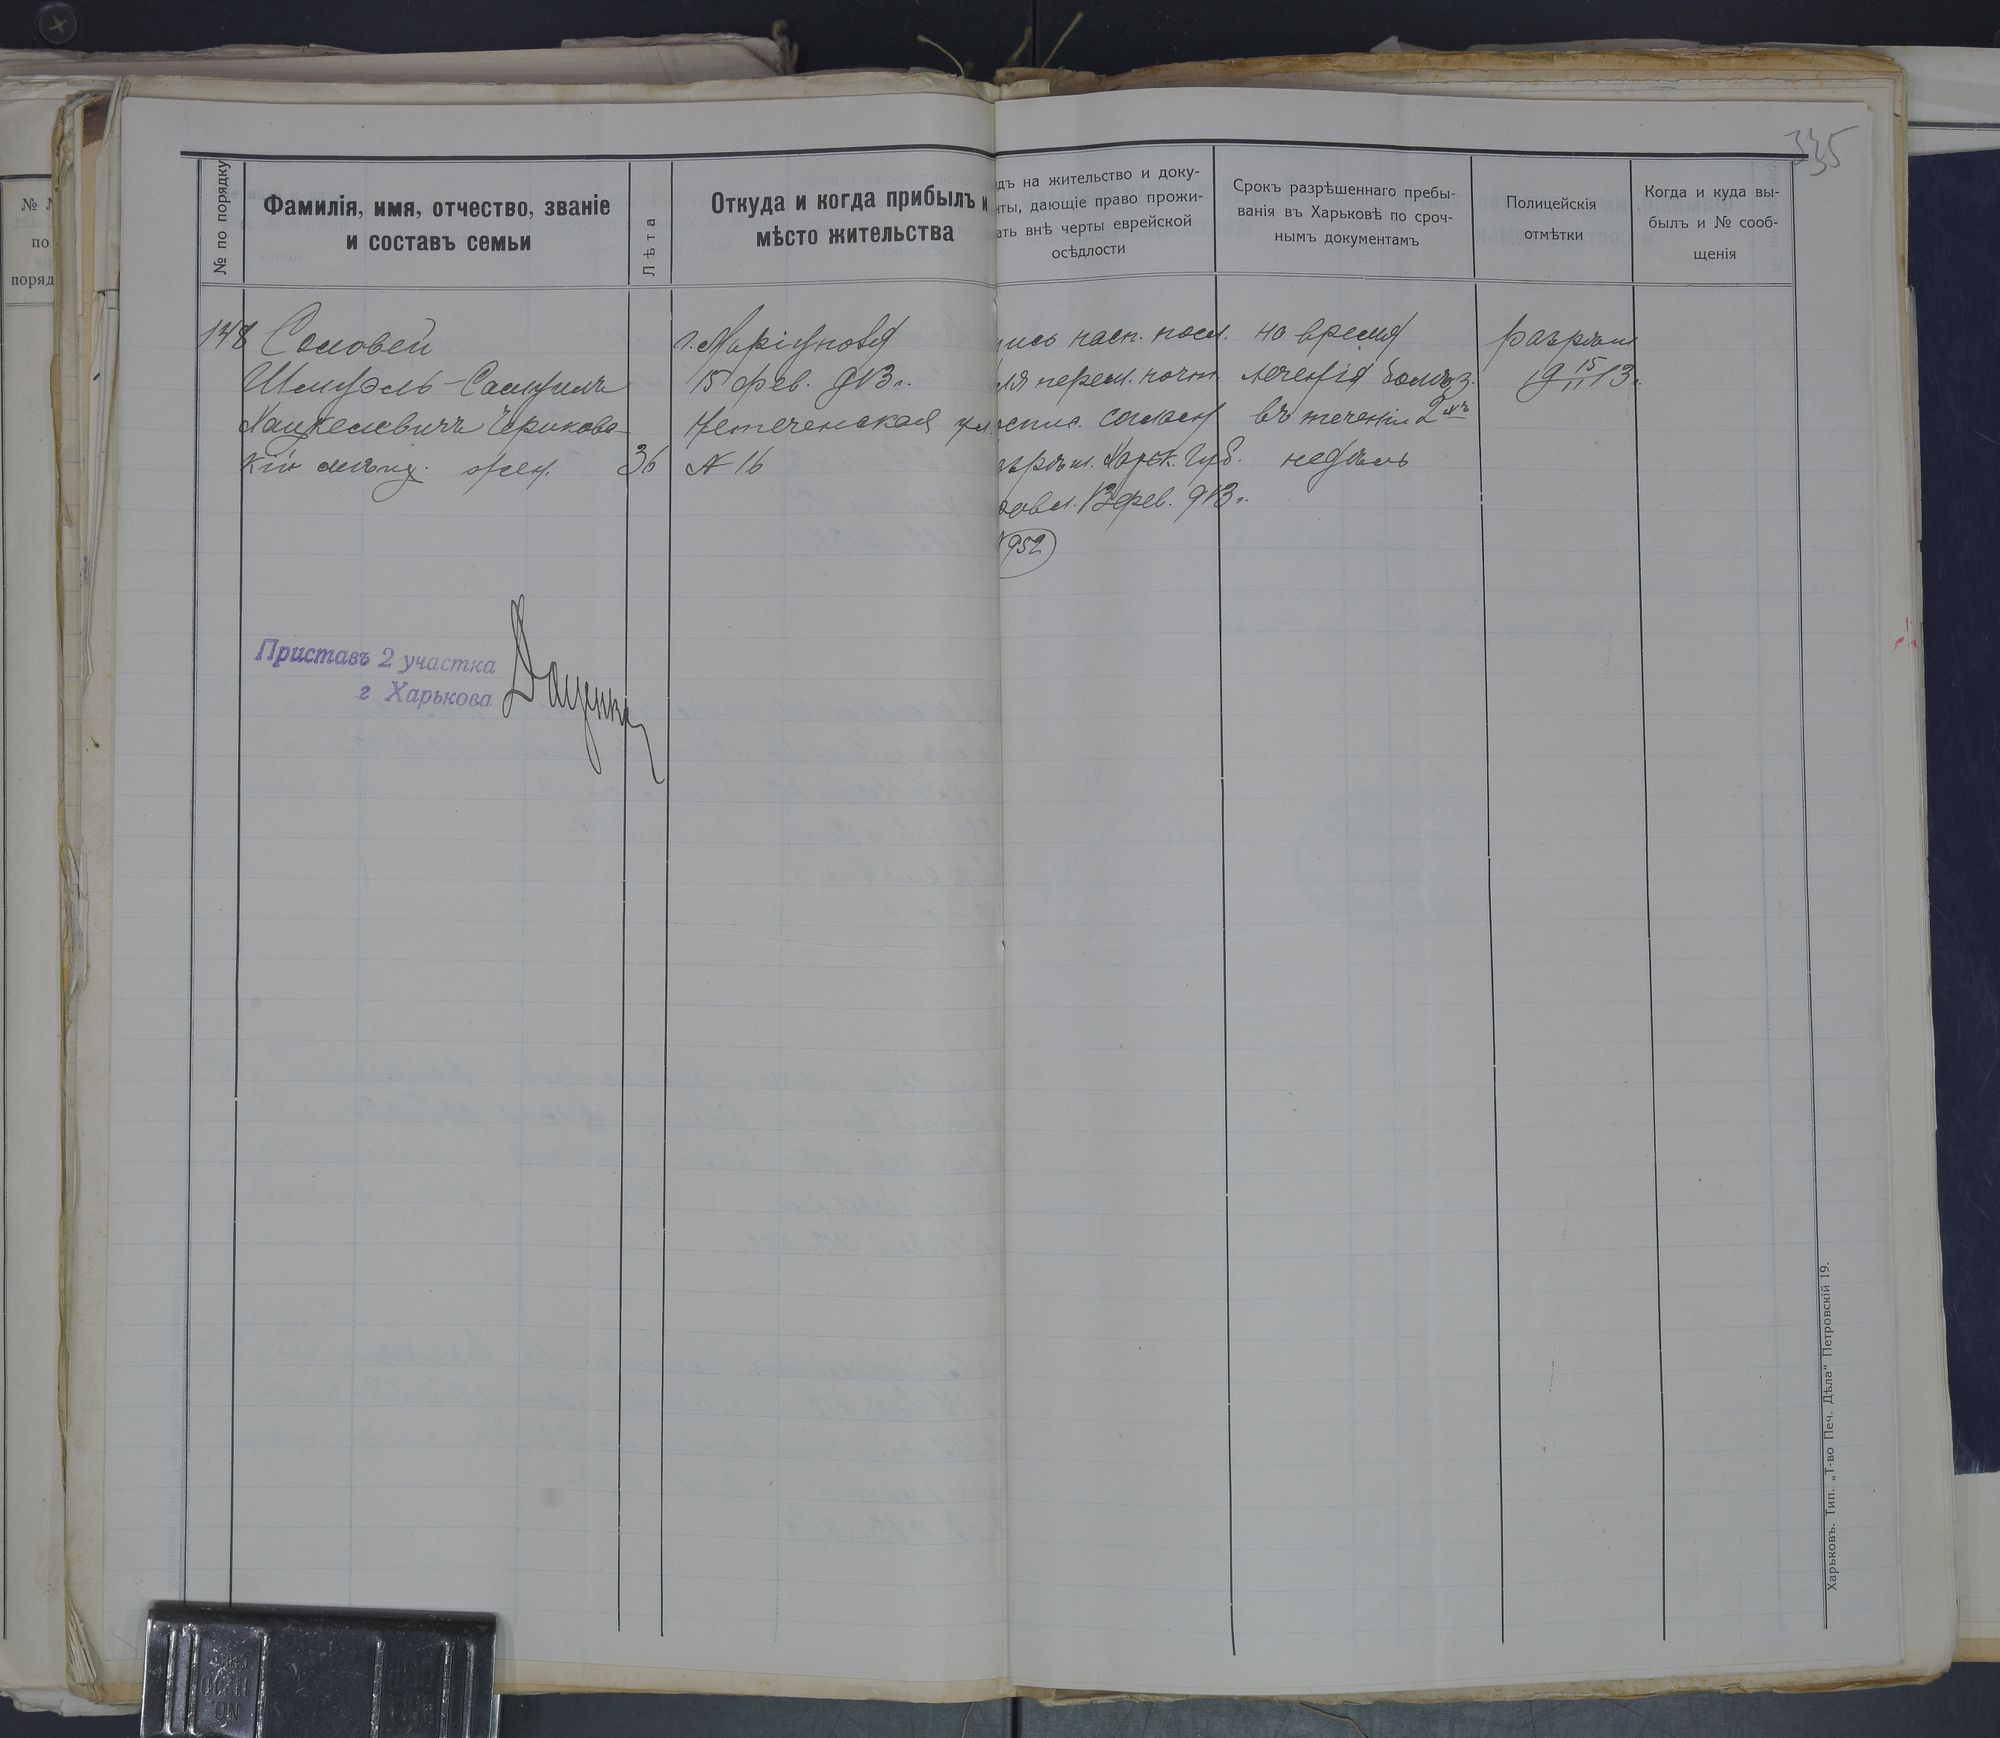 335
№ по порядку
Фамилія, имя, отчество, званіе
и составъ семьи
Лѣта
Откуда и когда прибылъ и
мѣсто жительства
дъ на жительство и доку-
нты, дающіе право прожи-
ать внѣ черты еврейской
осѣдлости
Срокъ разрѣшеннаго пребы-
ванія въ Харьковѣ по сроч-
нымъ документамъ
Полицейскія
отмѣтки
Когда и куда вы-
былъ и № сооб-
щенія
148 Соловей
Шмуэль-Самуилъ
Чериковс-
кій мѣщ. 36
г. Маріуполя
15 фев. 913 г.
Нетеченская ул.
№ 16
пись насп. посл.
согласн
Харьк. Губ.
13 фев. 913 г.
952
на время
леченія болѣз.
въ теченіи 2хъ
недѣль
разрѣш
9 15/II 13 г.
Приставъ 2 участка
г Харькова
Харьковъ. Тип. „Т-во Печ. Дѣла" Петровскій 19.
№ №
по
поряд